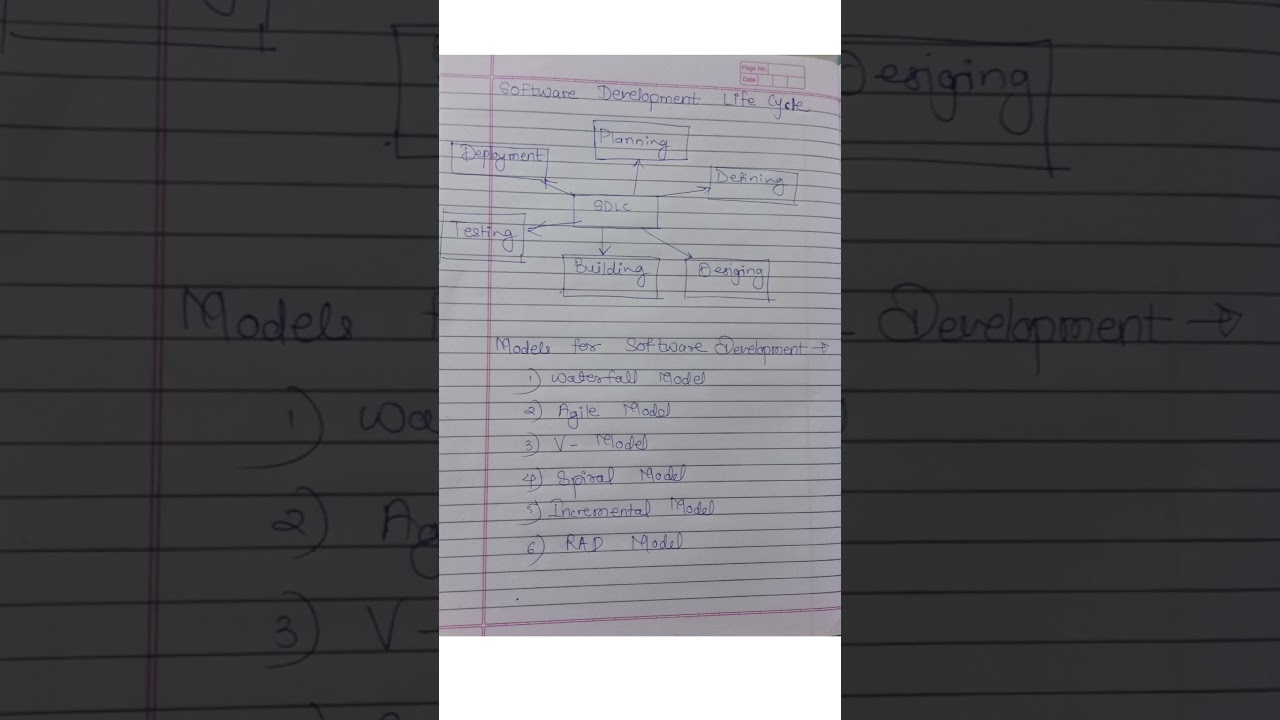 Page No.
Date
Software Development Life Cycle
Planning
Deployment
Defining
SDLC
Testing
Building
Desiging
Models for Software Development →
1) Waterfall Model
2) Agile Model
3) V- Model
4) Spiral Model
5) Incremental Model
6) RAD Model